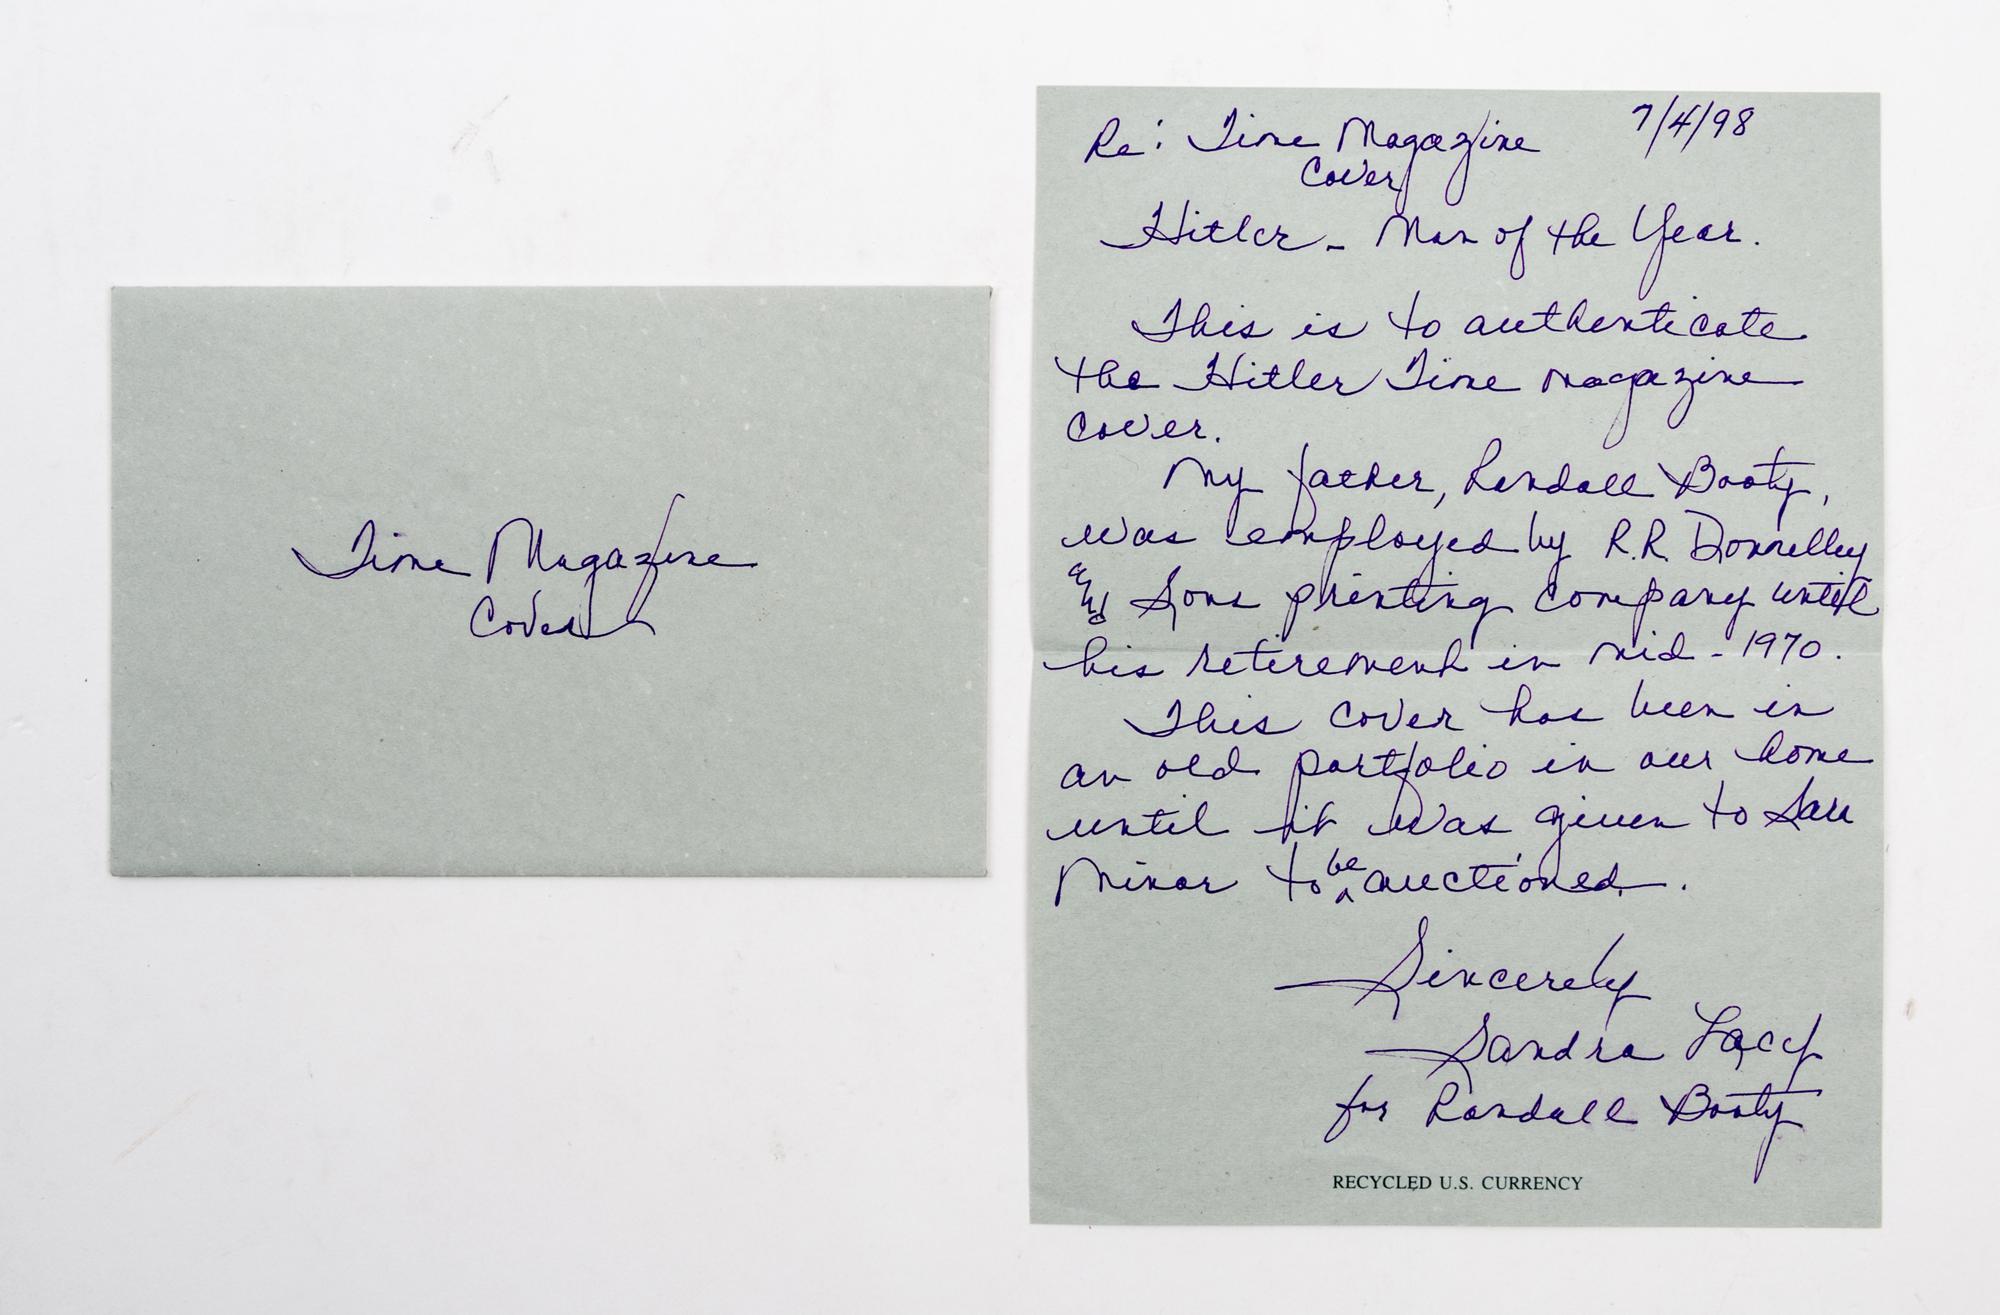 Time Magazine
Cover
Re: Time Magazine 7/4/98
Cover
Hitler - Man of the Year.
This is to authenticate
the Hitler Time magazine
cover.
My father, Randall Booty,
was employed by R.R. Donnelley
and Sons printing company until
his retirement in mid-1970.
This cover has been in
an old portfolio in our home
until it was given to
Minor to be auctioned.
Sincerely
Sandra Lacy
for Randall Booty
RECYCLED U.S. CURRENCY